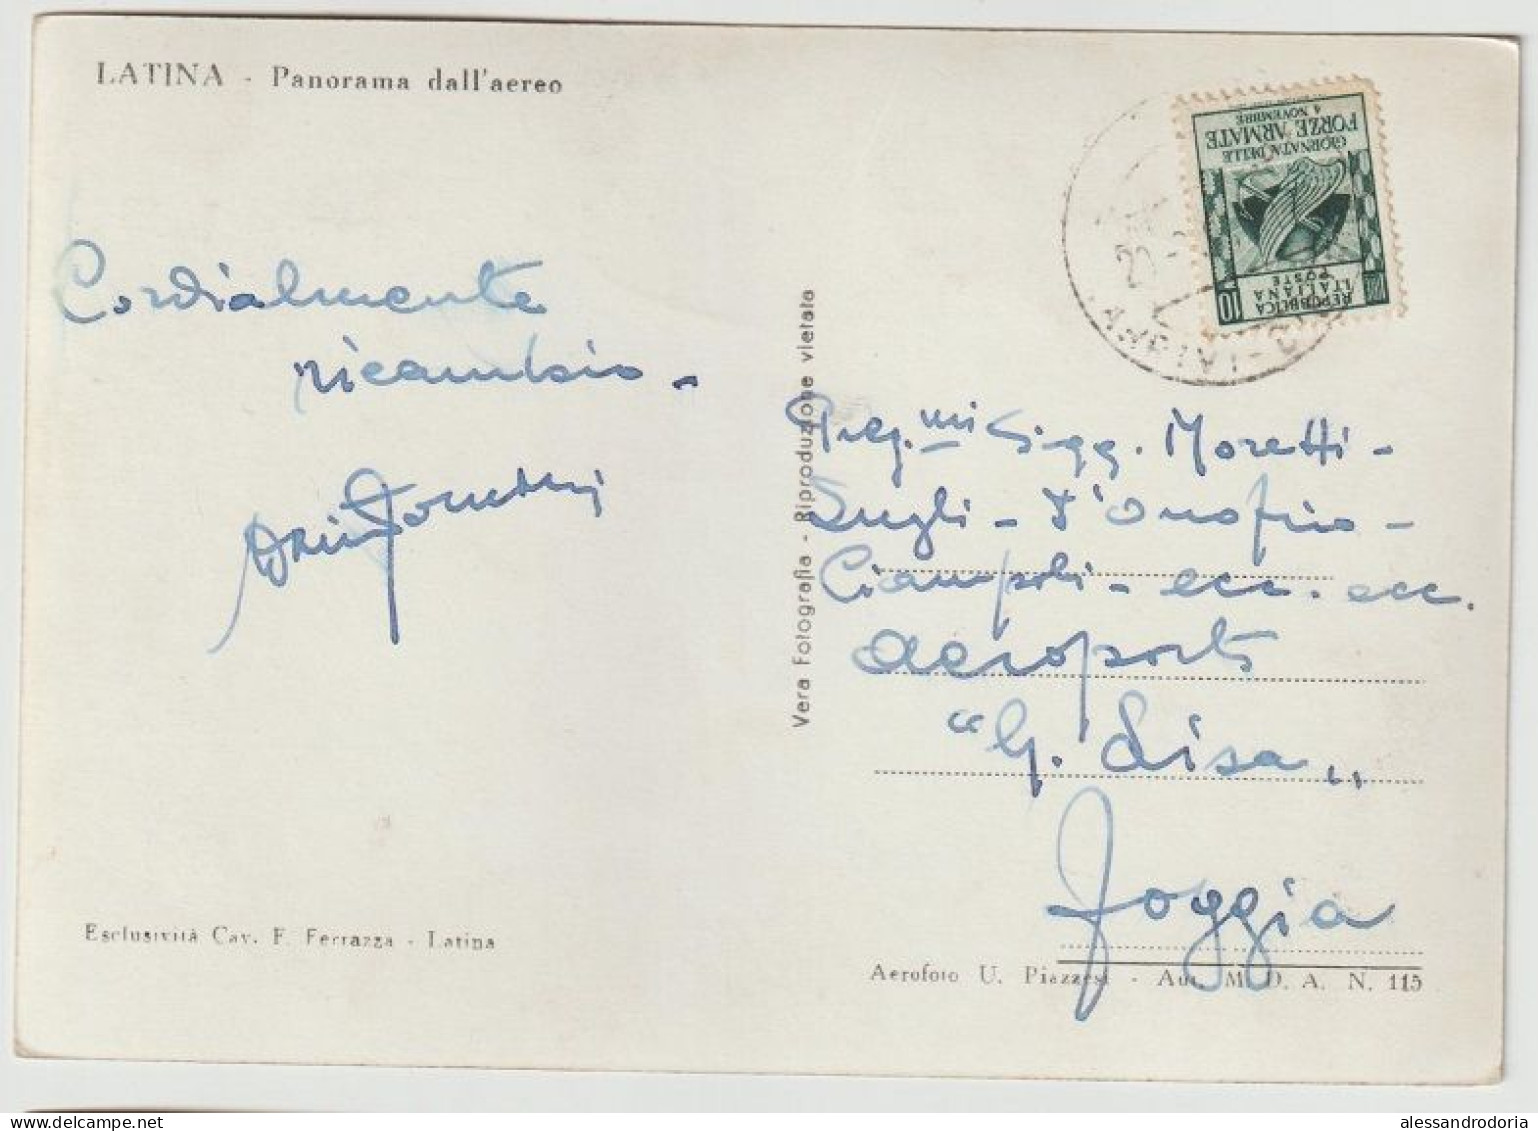 LATINA - Panorama dall'aereo
GIORNATA DELLE
FORZE ARMATE
4 NOVEMBRE
REPUBBLICA
ITALIANA
POSTE
10
Cordialmente
ricambio -
Vera Fotografia - Riproduzione vietata
Preg.mi Sigg. Moretti -
- d'Onofrio -
Ciampoli - ecc. ecc.
aeroporto
"G. Lisa"
Foggia
Esclusività Cav. F. Ferrazza - Latina
Aerofoto U. Piazzesi - Aut. M. D. A. N. 115
alessandrodoria
delcampe.net